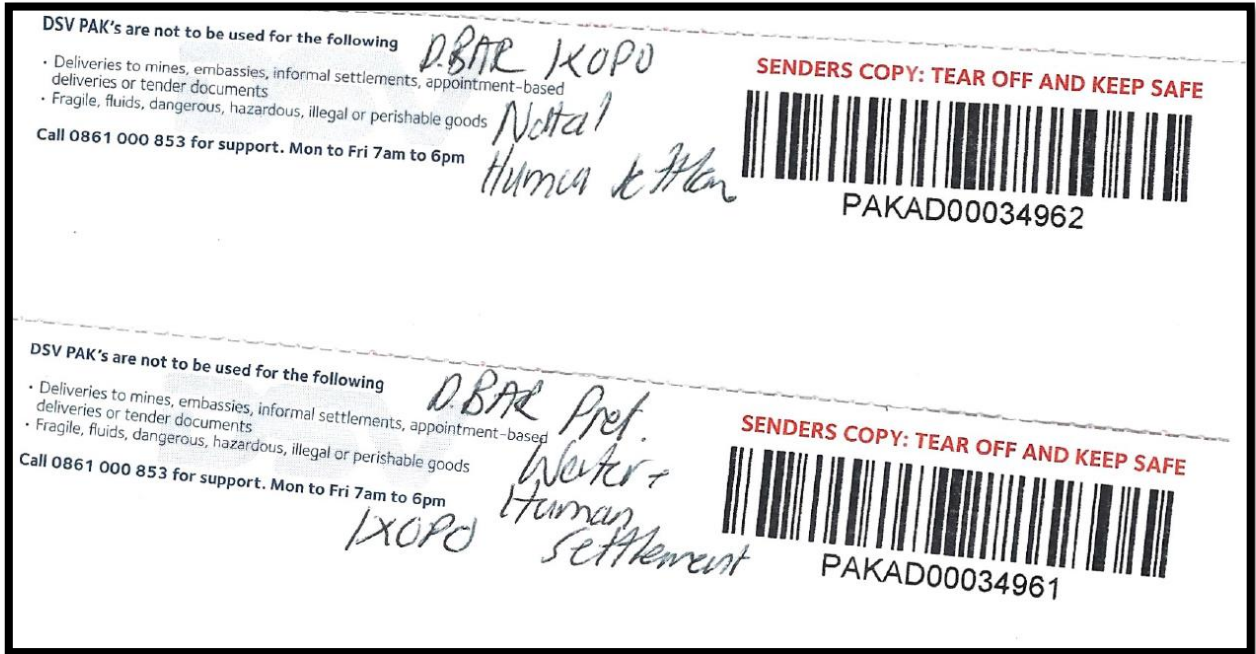 DSV PAK's are not to be used for the following
D.BAR IXOPO
• Deliveries to mines, embassies, informal settlements, appointment-based
deliveries or tender documents
• Fragile, fluids, dangerous, hazardous, illegal or perishable goods
Natal
Call 0861 000 853 for support. Mon to Fri 7am to 6pm
Human
SENDERS COPY: TEAR OFF AND KEEP SAFE
PAKAD00034962
DSV PAK's are not to be used for the following
D.BAR
• Deliveries to mines, embassies, informal settlements, appointment-based
deliveries or tender documents
• Fragile, fluids, dangerous, hazardous, illegal or perishable goods
Water +
Call 0861 000 853 for support. Mon to Fri 7am to 6pm
Human
IXOPO Settlement
SENDERS COPY: TEAR OFF AND KEEP SAFE
PAKAD00034961